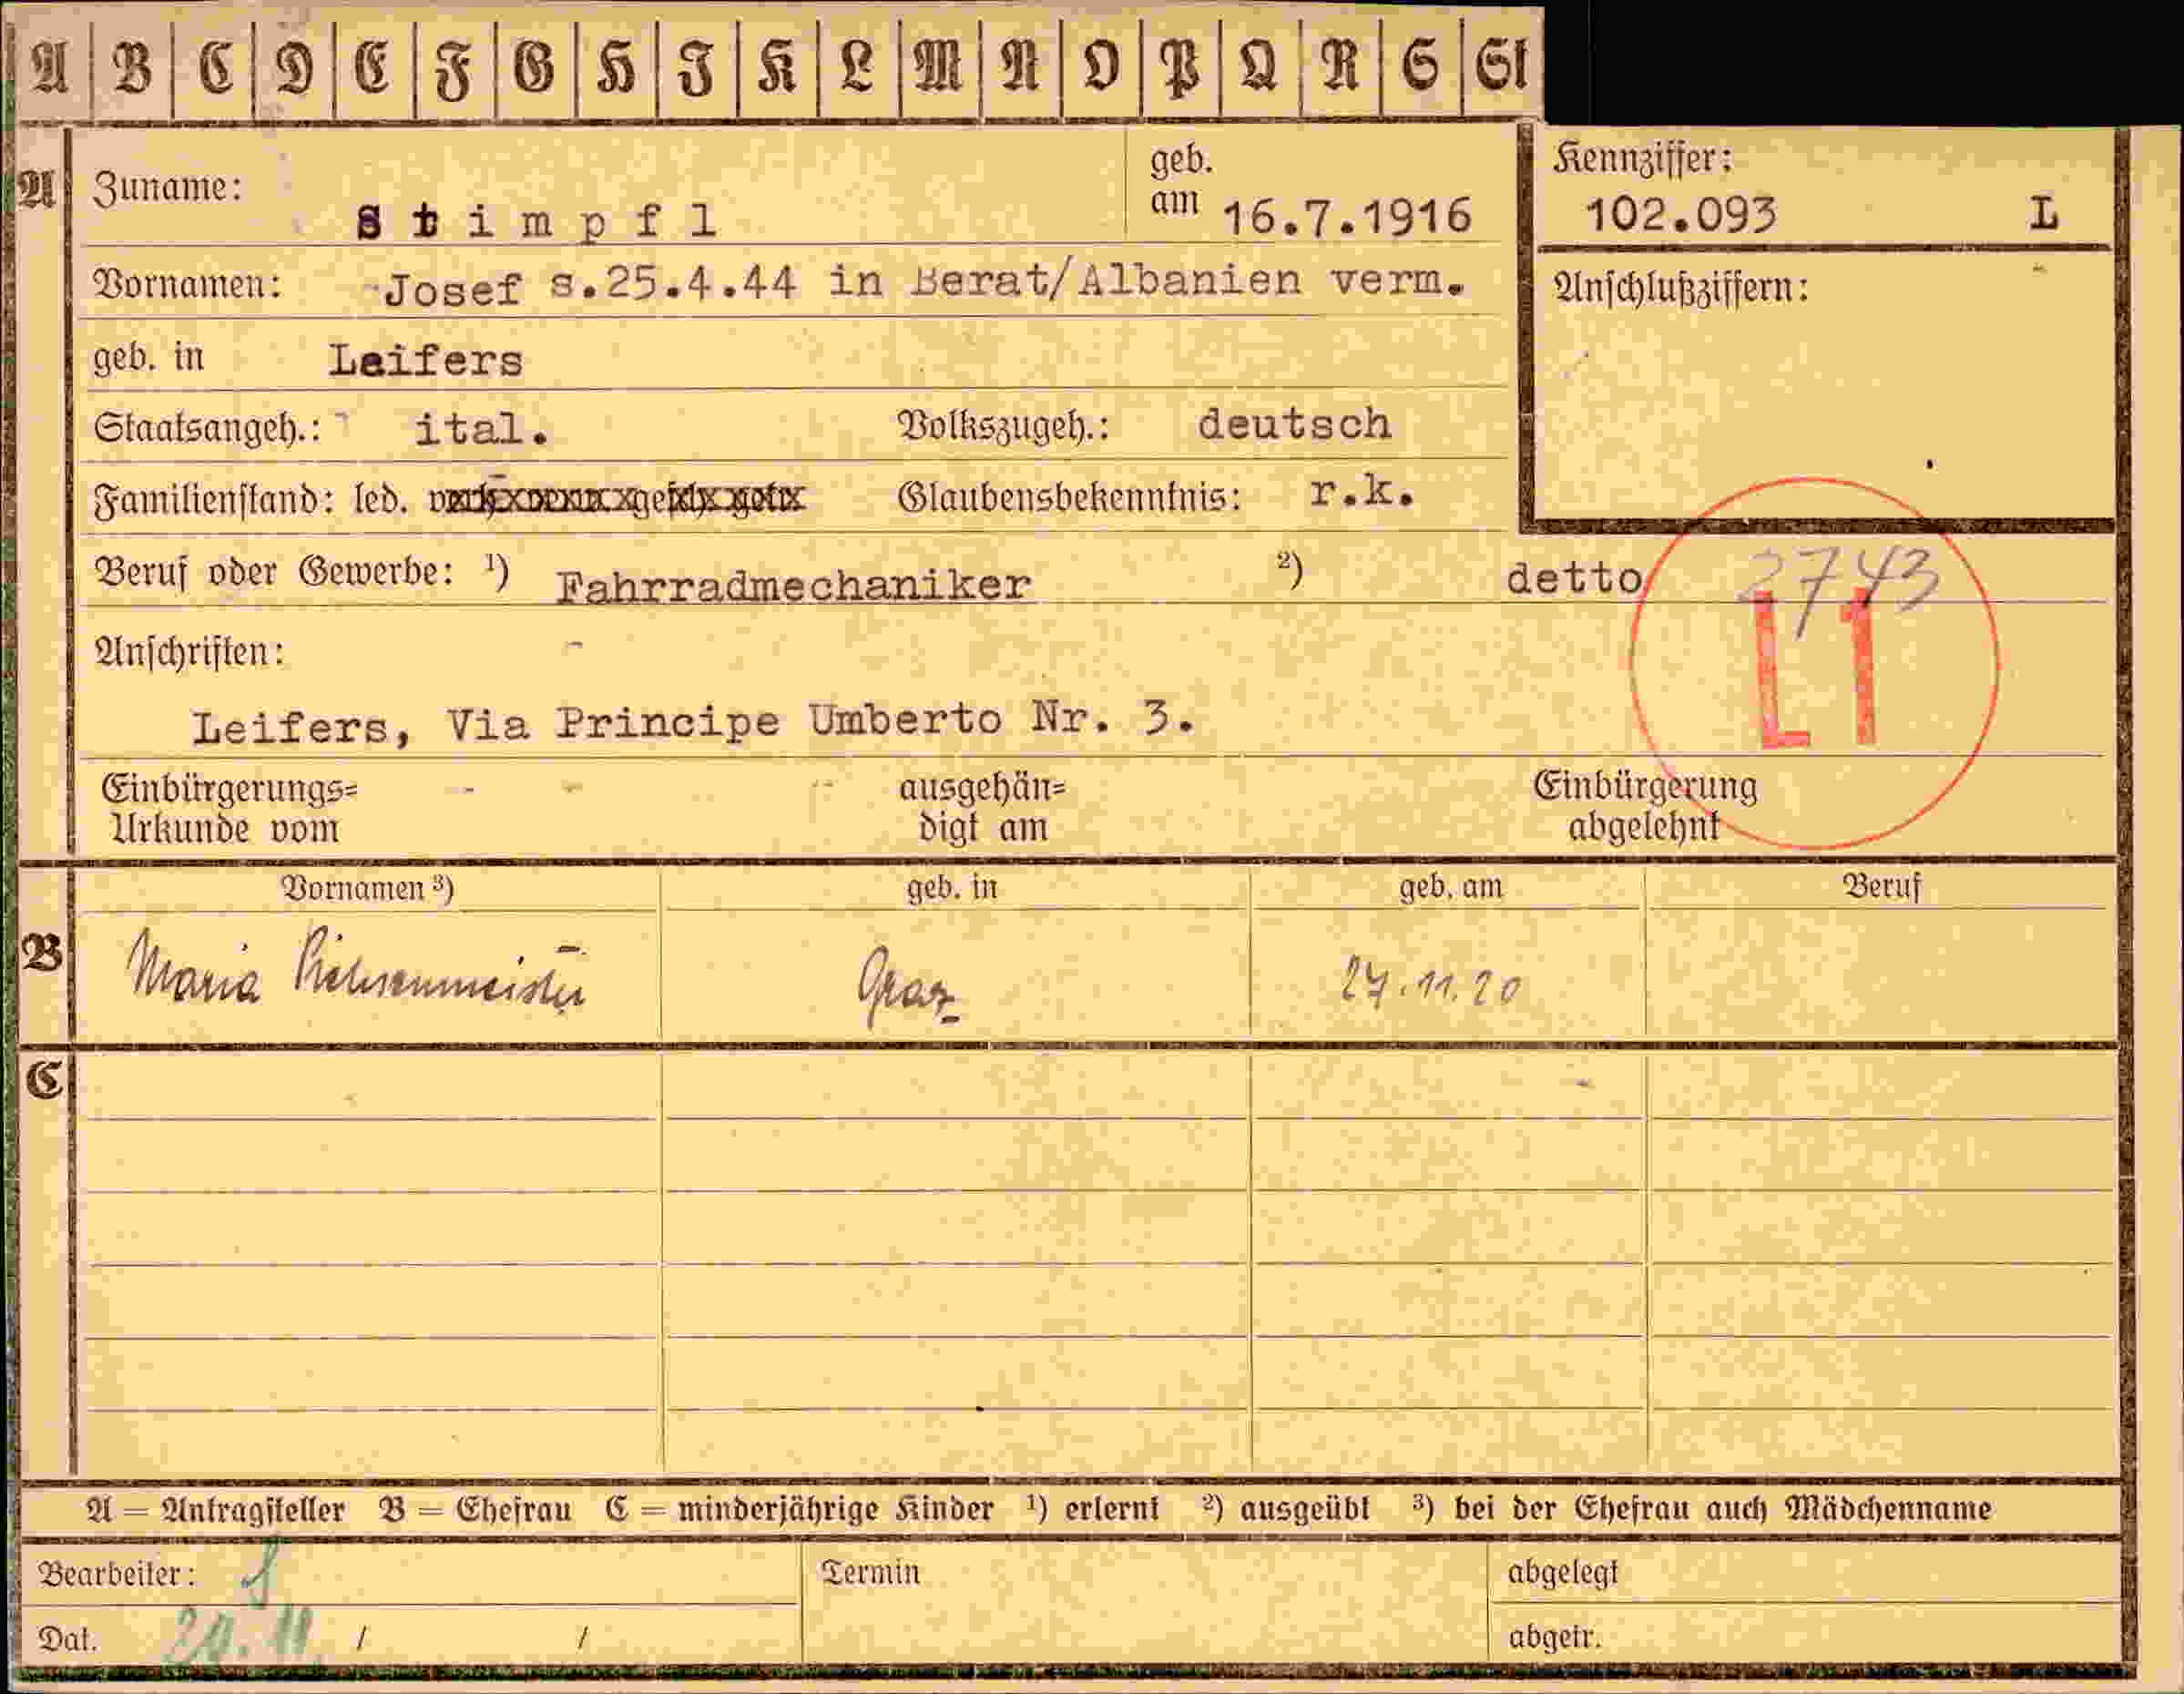 A B C D E F G H I K L M N O P Q R S St
A
Zuname: Stimpfl geb. am 16.7.1916
Kennziffer: 102.093 L
Vornamen: Josef s.25.4.44 in Berat/Albanien verm.
Anschlußziffern:
geb. in Leifers
Staatsangeh.: ital. Volkszugeh.: deutsch
Familienstand: led. Glaubensbekenntnis: r.k.
Beruf oder Gewerbe: 1) Fahrradmechaniker 2) detto
2743
L1
Anschriften:
Leifers, Via Principe Umberto Nr. 3.
Einbürgerungs= ausgehän= Einbürgerung
Urkunde vom digt am abgelehnt
Vornamen 3) geb. in geb. am Beruf
B
Maria Graz 27.11.20
C
A = Antragsteller B = Ehefrau C = minderjährige Kinder 1) erlernt 2) ausgeübt 3) bei der Ehefrau auch Mädchenname
Bearbeiter: Termin abgelegt
Dat. / / abgetr.